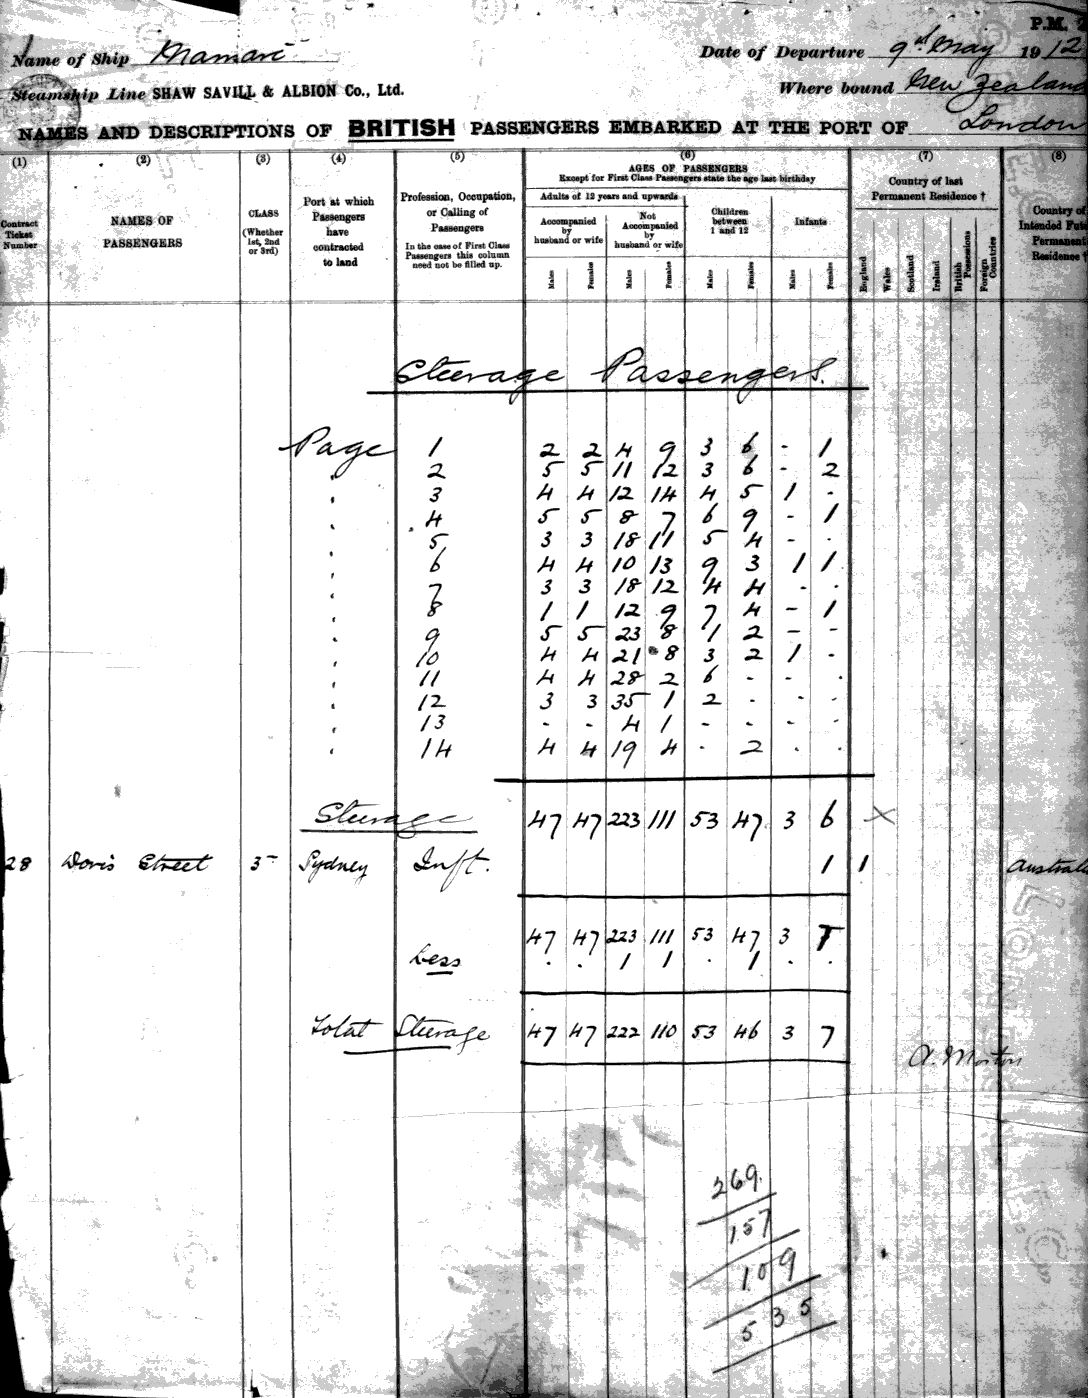 P.M. 2
Name of Ship Mamari Date of Departure 9th May 1912
Steamship Line SHAW SAVILL & ALBION Co., Ltd. Where bound New Zealand
NAMES AND DESCRIPTIONS OF BRITISH PASSENGERS EMBARKED AT THE PORT OF London
(1) (2) (3) (4) (5) (6) (7) (8)
Contract Ticket Number
NAMES OF PASSENGERS
CLASS (Whether 1st, 2nd or 3rd)
Port at which Passengers have contracted to land
Profession, Occupation, or Calling of Passengers
In the case of First Class Passengers this column need not be filled up.
AGES OF PASSENGERS
Except for First Class Passengers state the age last birthday
Adults of 12 years and upwards
Accompanied by husband or wife
Not Accompanied by husband or wife
Children between 1 and 12
Infants
Males Females Males Females Males Females Males Females
Country of last Permanent Residence †
England Wales Scotland Ireland British Possessions Foreign Countries
Country of Intended Fut Permanent Residence †
Steerage Passengers.
Page 1 2 2 4 9 3 6 - 1
" 2 5 5 11 12 3 6 - 2
" 3 4 4 12 14 4 5 1 -
" 4 5 5 8 7 6 9 - 1
" 5 3 3 18 11 5 4 - -
" 6 4 4 10 13 9 3 1 1
" 7 3 3 18 12 4 4 - -
" 8 1 1 12 9 7 4 - 1
" 9 5 5 23 8 1 2 - -
" 10 4 4 21 8 3 2 1 -
" 11 4 4 28 2 6 - - -
" 12 3 3 35 1 2 - - -
" 13 - - 4 1 - - - -
" 14 4 4 19 4 - 2 - -
Steerage 47 47 223 111 53 47 3 6 X
28 Doris Street 3 Sydney Inft. 1 1 Australia
47 47 223 111 53 47 3 7
Less . . 1 1 . 1 . .
Total Steerage 47 47 222 110 53 46 3 7
A. Morton
269
157
109
535